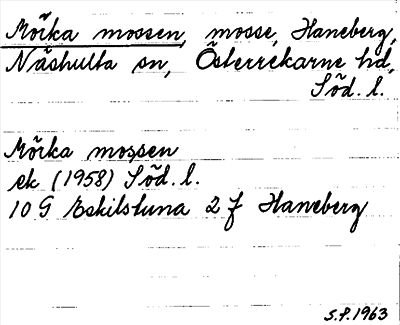 Mörka mossen, mosse, Haneberg,
Näshulta sn, Österrekarne hd,
Söd. l.
Mörka mossen
ek (1958) Söd. l.
10 G Eskilstuna 2 f Haneberg
S.P. 1963